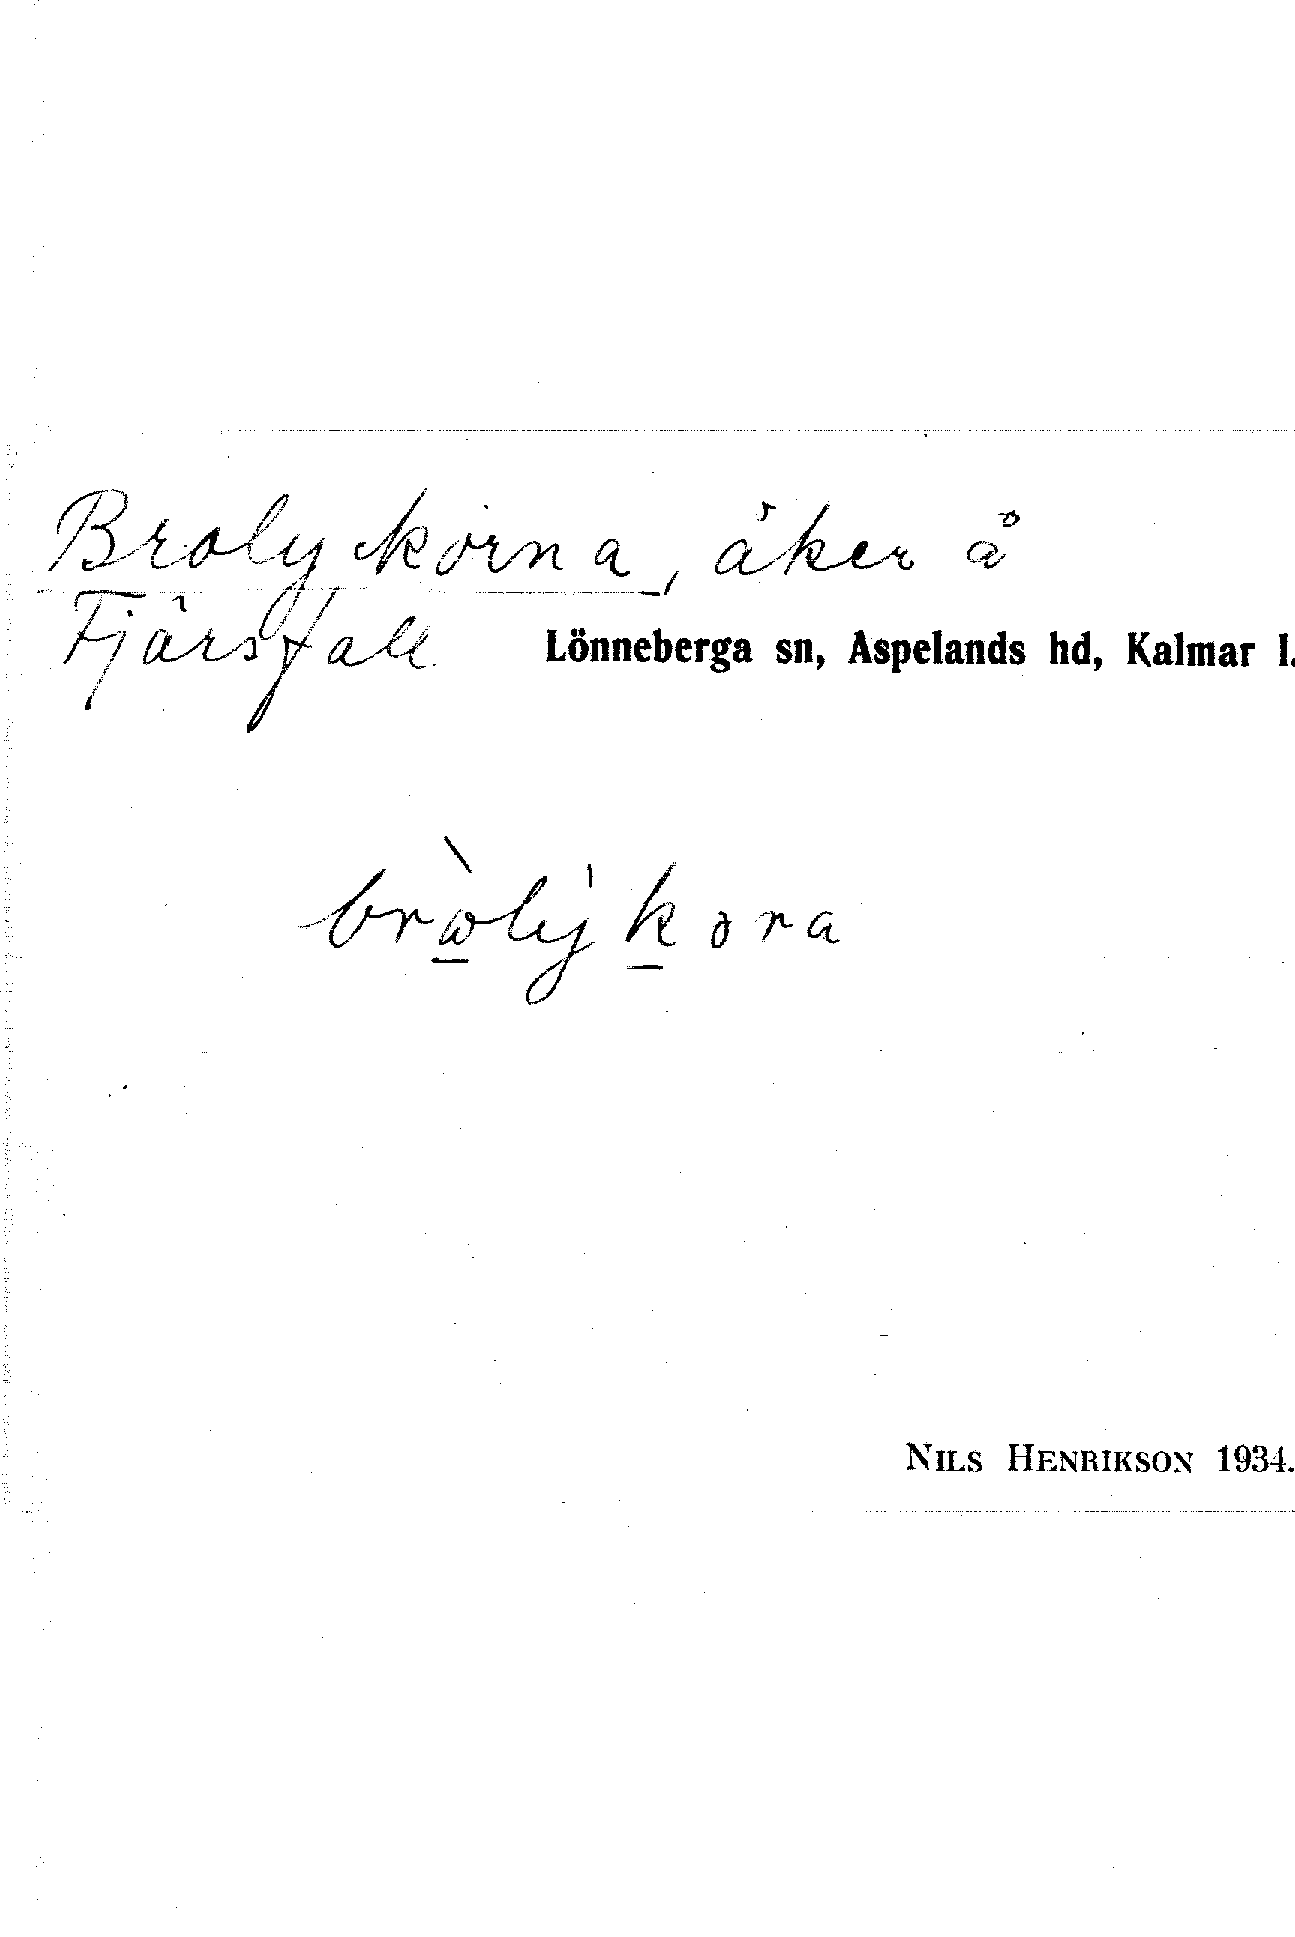 Brolyckorna, åker å
Fjärsfall Lönneberga sn, Aspelands hd, Kalmar l.
brὼly̍kəra
NILS HENRIKSON 1934.